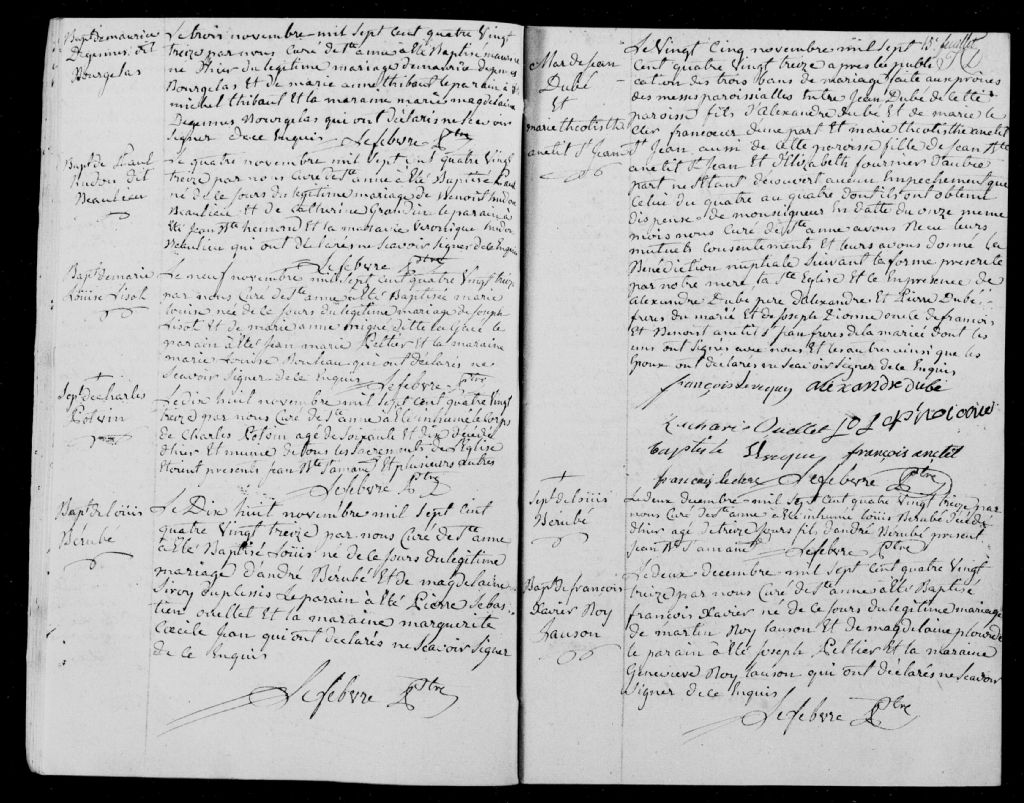 Bapt de maurice
Degennes dit
Bourgelas
Le trois novembre mil Sept Cent quatre Vingt
treize par nous Curé de Ste anne a été Baptisé maurice
né Hier du légitime mariage de maurice degennes
Bourgelas Et de marie anne thibaut le parain à été
michel thibaut Et la maraine marie magdelaine
Degennes Bourgelas qui ont déclarés ne Scavoir
Signer de ce Enquis Lefebvre Ptre
Bapt de Paul
hudon dit
Beaulieu
Le quatre novembre mil Sept Cent quatre Vingt
treize par nous Curé de Ste anne à été Baptisé Paul
né de ce Jours du légitime mariage de Benoist hudon
Beaulieu Et de Catherine Grondin le parain à
été Jean Bte et la maraine Veronique hudon
Beaulieu qui ont déclarés ne Scavoir Signer de ce Enquis
Lefebvre Ptre
Bapt de marie
Louise Lisot
Le neuf novembre mil Sept Cent quatre Vingt treize
par nous Curé de Ste anne a été Baptisée marie
louise née de ce Jours du légitime mariage de Joseph
Lisot Et de marie anne migné dette la Gacé le
parain à été Jean marie Peltier Et la maraine
marie Louise Rouleau qui ont déclarés ne
Scavoir Signer de ce Enquis Lefebvre Ptre
Sep. de charles
Potvin
Le dix huit novembre mil Sept Cent quatre Vingt
treize par nous Curé de Ste anne à été inhumé le Corps
de Charles Potvin agé de Soixante Et dix décédé
d'hier Et munie de tous les Sacrements de l'Eglise
Etoient presents Jean Bte Tamant Et plusieurs autres
Lefebvre Ptre
Bapt. de Loüis
Bérubé
Le Dix huit novembre mil Sept Cent
quatre Vingt treize par nous Curé de Ste anne
à été Baptisé Loüis né de ce Jours du légitime
mariage d'andré Bérubé Et de magdelaine
Siroy duplesis Le parain à été Pierre Sebas-
tien ouellet Et la maraine marguerite
Cœcile Jean qui ont déclarés ne Scavoir Signer
de ce Enquis
Lefebvre Ptre
15e feuillet
Mar de Jean
Dubé
Et
marie theotisthe
anctil St Jean
Le Vingt Cinq novembre mil Sept
Cent quatre Vingt treize apres les publi
cation des trois bans de mariage faite aus prônes
des messes paroissialles Entre Jean Dubé de cette
paroisse fils d'Alexandre Dubé Et de marie le
Clerc francoeur d'une part Et marie theotisthe anctil
St Jean aussi de cette paroisse fille de Jean Bte
anctil St Jean Et d'Elizabeth fournier d'autre
part ne s'Etant découvert aucun Empechement que
Celui du quatre au quatre dont ils ont obtenu
dispense de monseigneur En datte du onze meme
mois nous Curé de Ste anne avons Recu leurs
mutuels Consentements Et leurs avons donné la
Bénédiction nuptiale Suivant la forme prescrite
par notre mere la Ste Eglise Et ce En presence de
alexandre Dubé pere d'alexandre Et Pierre Dubé
freres du marié Et de Joseph Dionne oncle de francois
Et Benoist anctil St jean freres de la mariée dont les
uns ont Signés avec nous Et les autres ainsi que les
Epoux ont déclarés ne Scavoir Signer de ce Enquis
françois levequ alexandre Dube
Zacharie Ouellet Josephe dionne
baptiste levequ françois anctil
françois leclerc Lefebvre Ptre
Sept. de Loüis
Bérubé
Le deux decembre mil Sept Cent quatre Vingt treize par
nous Curé de Ste anne à été inhumé Loüis Bérubé decédé
d'hier agé de treize Jours fils d'andré Bérubé present
Jean Bte Tamant Lefebvre Ptre
Bapt. de françois
Xavier Roy
Lauson
Le deux decembre mil Sept Cent quatre Vingt
treize par nous Curé de Ste anne a été Baptisé
françois Xavier né de ce Jours du légitime mariage
de martin Roy lauson Et de magdelaine plourde
le parain à été Joseph Peltier Et la maraine
Genevieve Roy lauson qui ont déclarés ne Scavoir
Signer de ce Enquis
Lefebvre Ptre